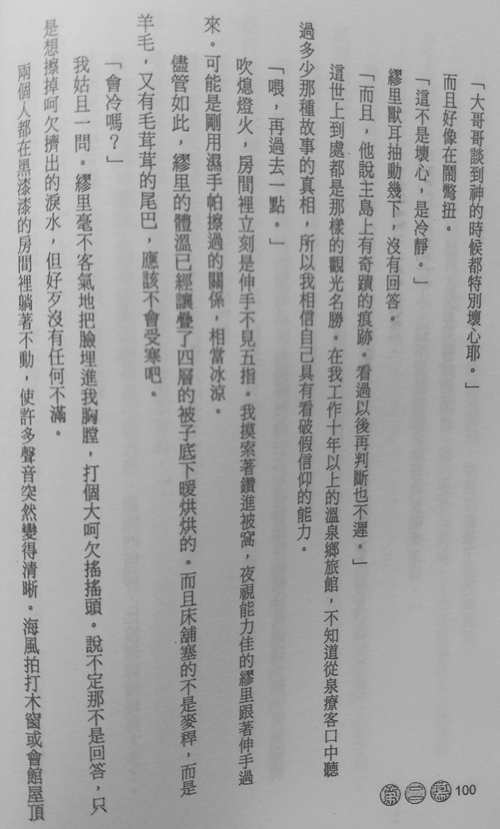 「大哥哥談到神的時候都特別壞心耶。」
而且好像在鬧彆扭。
「這不是壞心，是冷靜。」
繆里獸耳抽動幾下，沒有回答。
「而且，他說主島上有奇蹟的痕跡。看過以後再判斷也不遲。」
這世上到處都是那樣的觀光名勝。在我工作十年以上的溫泉鄉旅館，不知道從泉療客口中聽
過多少那種故事的真相，所以我相信自己具有看破假信仰的能力。
「喂，再過去一點。」
吹熄燈火，房間裡立刻是伸手不見五指。我摸索著鑽進被窩，夜視能力佳的繆里跟著伸手過
來。可能是剛用濕手帕擦過的關係，相當冰涼。
儘管如此，繆里的體溫已經讓疊了四層的被子底下暖烘烘的。而且床舖塞的不是麥稈，而是
羊毛，又有毛茸茸的尾巴，應該不會受寒吧。
「會冷嗎？」
我姑且一問。繆里毫不客氣地把臉埋進我胸膛，打個大呵欠搖搖頭。說不定那不是回答，只
是想擦掉呵欠擠出的淚水，但好歹沒有任何不滿。
兩個人都在黑漆漆的房間裡躺著不動，使許多聲音突然變得清晰。海風拍打木窗或會館屋頂
第二幕 100